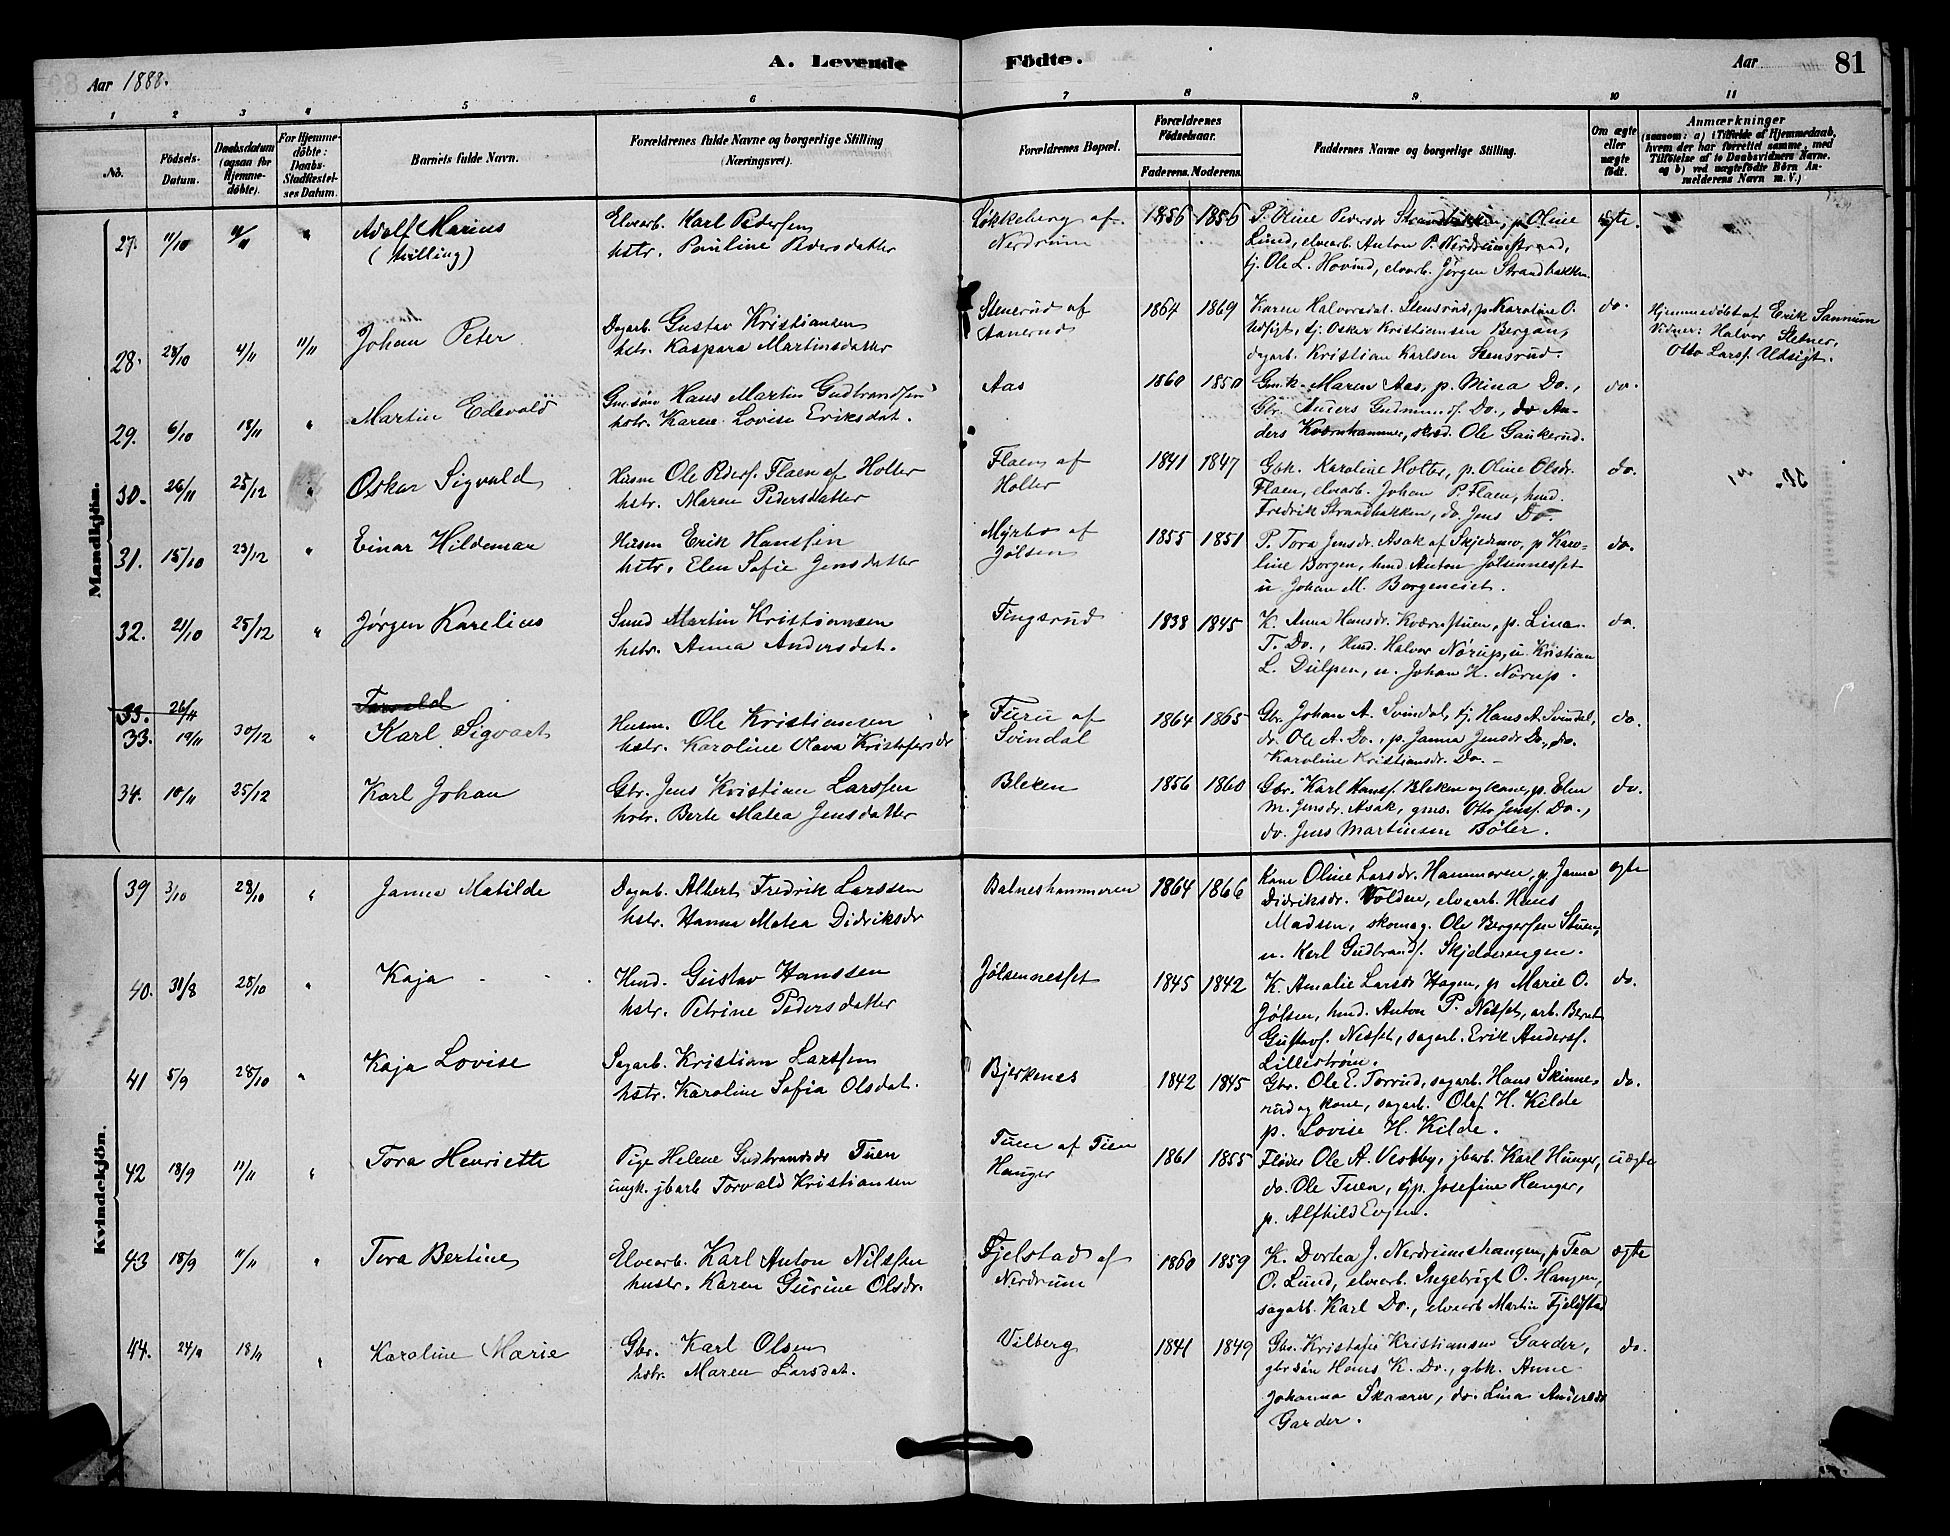 Aar 1888.
A. Levende Födte.
Aar
81
1 2 3 4 5 6 7 8 9 10 11
No.
Födsels-Datum.
Daabsdatum (ogsaa for Hjemme-döbte).
For Hjemme-döbte: Daabs-Stadfæstel-ses Datum.
Barnets fulde Navn.
Forældrenes fulde Navne og borgerlige Stilling (Næringsvei).
Forældrenes Bopæl.
Forældrenes Födselsaar.
Faderens. Moderens.
Faddernes Navne og borgerlige Stilling.
Om ægte eller uægte födt.
Anmærkninger
(saasom: a) i Tilfælde af Hjemmedaab, hvem der har forrettet samme, med Tilföielse af to Daabsvidners Navne, og b) ved uægtefödte Börn Anmelderens Navn m. V.)
Mandkjön.
27. 11/10 4/11 " Adolf Marius (tvilling)
Elvearb. Karl Pedersen
hstr. Pauline Pedersdatter
Løkkeberg af Nerdrum
1856 1856
P. Oline Pedersdr Strandbakken, p. Oline
Lund, elvearb. Anton P. Nerdrumstrand,
tj. Ole L. Hovind, elvearb. Jørgen Strandbakken.
ægte.
28. 28/10 4/11 11/11 Johan Peter
Dagarb. Gustav Kristiansen
hstr. Kaspara Martinsdatter
Stenerud af Aanerud
1864 1869
Karen Halvorsdat. Stensrud, p. Karoline O.
Udsigt, tj. Oskar Kristiansen Bergan,
dagarb. Kristian Karlsen Stensrud.
do.
Hjemmedöbt af Erik Sannum
Vidner: Halvor Sletner,
Otto Larss. Udsigt.
29. 6/10 18/11 " Martin Edevald
Gmsøn Hans Martin Gudbrandsen
hstr. Karen Lovise Eriksdat.
Aas
1860 1850
Gmk. Maren Aas, p. Mina Do.,
Gbr. Anders Gudmunds. Do., do An-
ders Kværnhammer, skræd. Ole Gaukerud.
do.
30. 26/11 25/12 " Oskar Sigvald
Husm Ole Peders. Flaen af Holter
hstr. Maren Pedersdatter
Flaen af Holter
1841 1847
Gbk. Karoline Holter, p. Oline Olsdr.
Flaen, elvearb. Johan P. Flaen, hmd.
Fredrik Strandbakken, do. Jens Do.
do.
31. 15/10 23/12 " Einar Hildemar
Husm Erik Hanssen
hstr. Elen Sofie Jensdatter
Myrbo af Jølsen
1855 1851
P. Tora Jensdr. Asak af Skjedsmo, p Karo-
line Borgen, hmd Anton Jølsennesset
u Johan M. Borgeneiet.
do.
32. 21/10 25/12 " Jørgen Karelius
Smed Martin Kristiansen
hstr. Anna Andersdat.
Tingsrud
1838 1845
K. Anna Hansdr. Kværnstuen, p. Lina
T. Do., Hmd. Halvor Nórup, u. Kristian
L. Dulpen, u. Johan H. Nórup.
do.
33. 26/11 Torvald
33. 19/11 30/12 " Karl Sigvart
Husm. Ole Kristiansen
hstr. Karoline Olava Kristofersdr
Furu af Svindal
1864 1865
Gbr. Johan A. Svindal, tj. Hans A. Svindal,
do. Ole A. Do., p. Janna Jensdr Do., do.
Karoline Kristiansdr. Do.
do.
34. 10/11 25/12 Karl Johan
Gbr. Jens Kristian Larssen
hstr. Berte Matea Jensdatter
Bleken
1856 1860
Gbr. Karl Hanss. Bleken og kone, p. Elen
M. Jensdr. Asak, gms. Otto Jenss. Do.,
do. Jens Martinsen Bøler.
do.
Kvindekjön.
39 3/10 28/10 " Janna Matilde
Dagarb. Albert Fredrik Larssen
hstr. Hanna Matea Didriksdr
Batneshammeren
1864 1866
Kone Oline Larsdr. Hammeren, p. Janna
Didriksdr. Volden, elvearb. Hans
Madsen, skomag. Ole Bergersen Stuen,
u. Karl Gudbrands. Skjelvangen.
ægte
40. 31/8 28/10 " Kaja
Hmd. Gustav Hanssen
hstr. Petrine Pedersdatter
Jølsennesset
1845 1842
K. Amalie Larsdr Hagen, p Marie O.
Jølsen, hmd. Anton P. Nesset, arb. Bernt
Gustavs. Nesset, sagarb. Erik Anderss.
Lillestrøm.
do.
41 5/9 28/10 " Kaja Lovise
Sagarb. Kristian Larssen
hstr. Karoline Sofia Olsdat.
Bjerkenes
1842 1845
Gbr. Ole E. Torrud, sagarb. Hans Skinne-
rud og kone, sagarb. Olaf H. Kilde
p. Lovise H. Kilde.
do.
42 18/9 11/11 " Tora Henriette
Pige Helene Gudbrandsdr Tuen
ungk. jbarb Torvald Kristiansen
Tuen af Tien Hauger
1861 1855
Fløder Ole A. Vestby, jbarb. Karl Hunger,
do. Ole Tuen, tjp. Josefine Hunger,
p. Alfhild Evjen.
uægte
43 18/9 11/11 " Tora Bertine
Elvearb. Karl Anton Nilssen
hustr. Karen Gurine Olsdr.
Fjelstad af Nerdrum
1860 1859
K. Dortea J. Nerdrumshaugen, p Tea
O. Lund, elvearb. Ingebrigt O. Haugen,
sagarb. Karl Do., elvearb Martin Fjelstad
ægte
44. 24/9 18/11 " Karoline Marie
Gbr. Karl Olsen
hstr. Maren Larsdat.
Vilberg
1841 1849
Gbr. Kristofer Kristiansen Garder,
gbrsøn Hans K. Do., gbk. Anne
Johanna Skaarer, do. Lina Andersdr
Garder.
do.